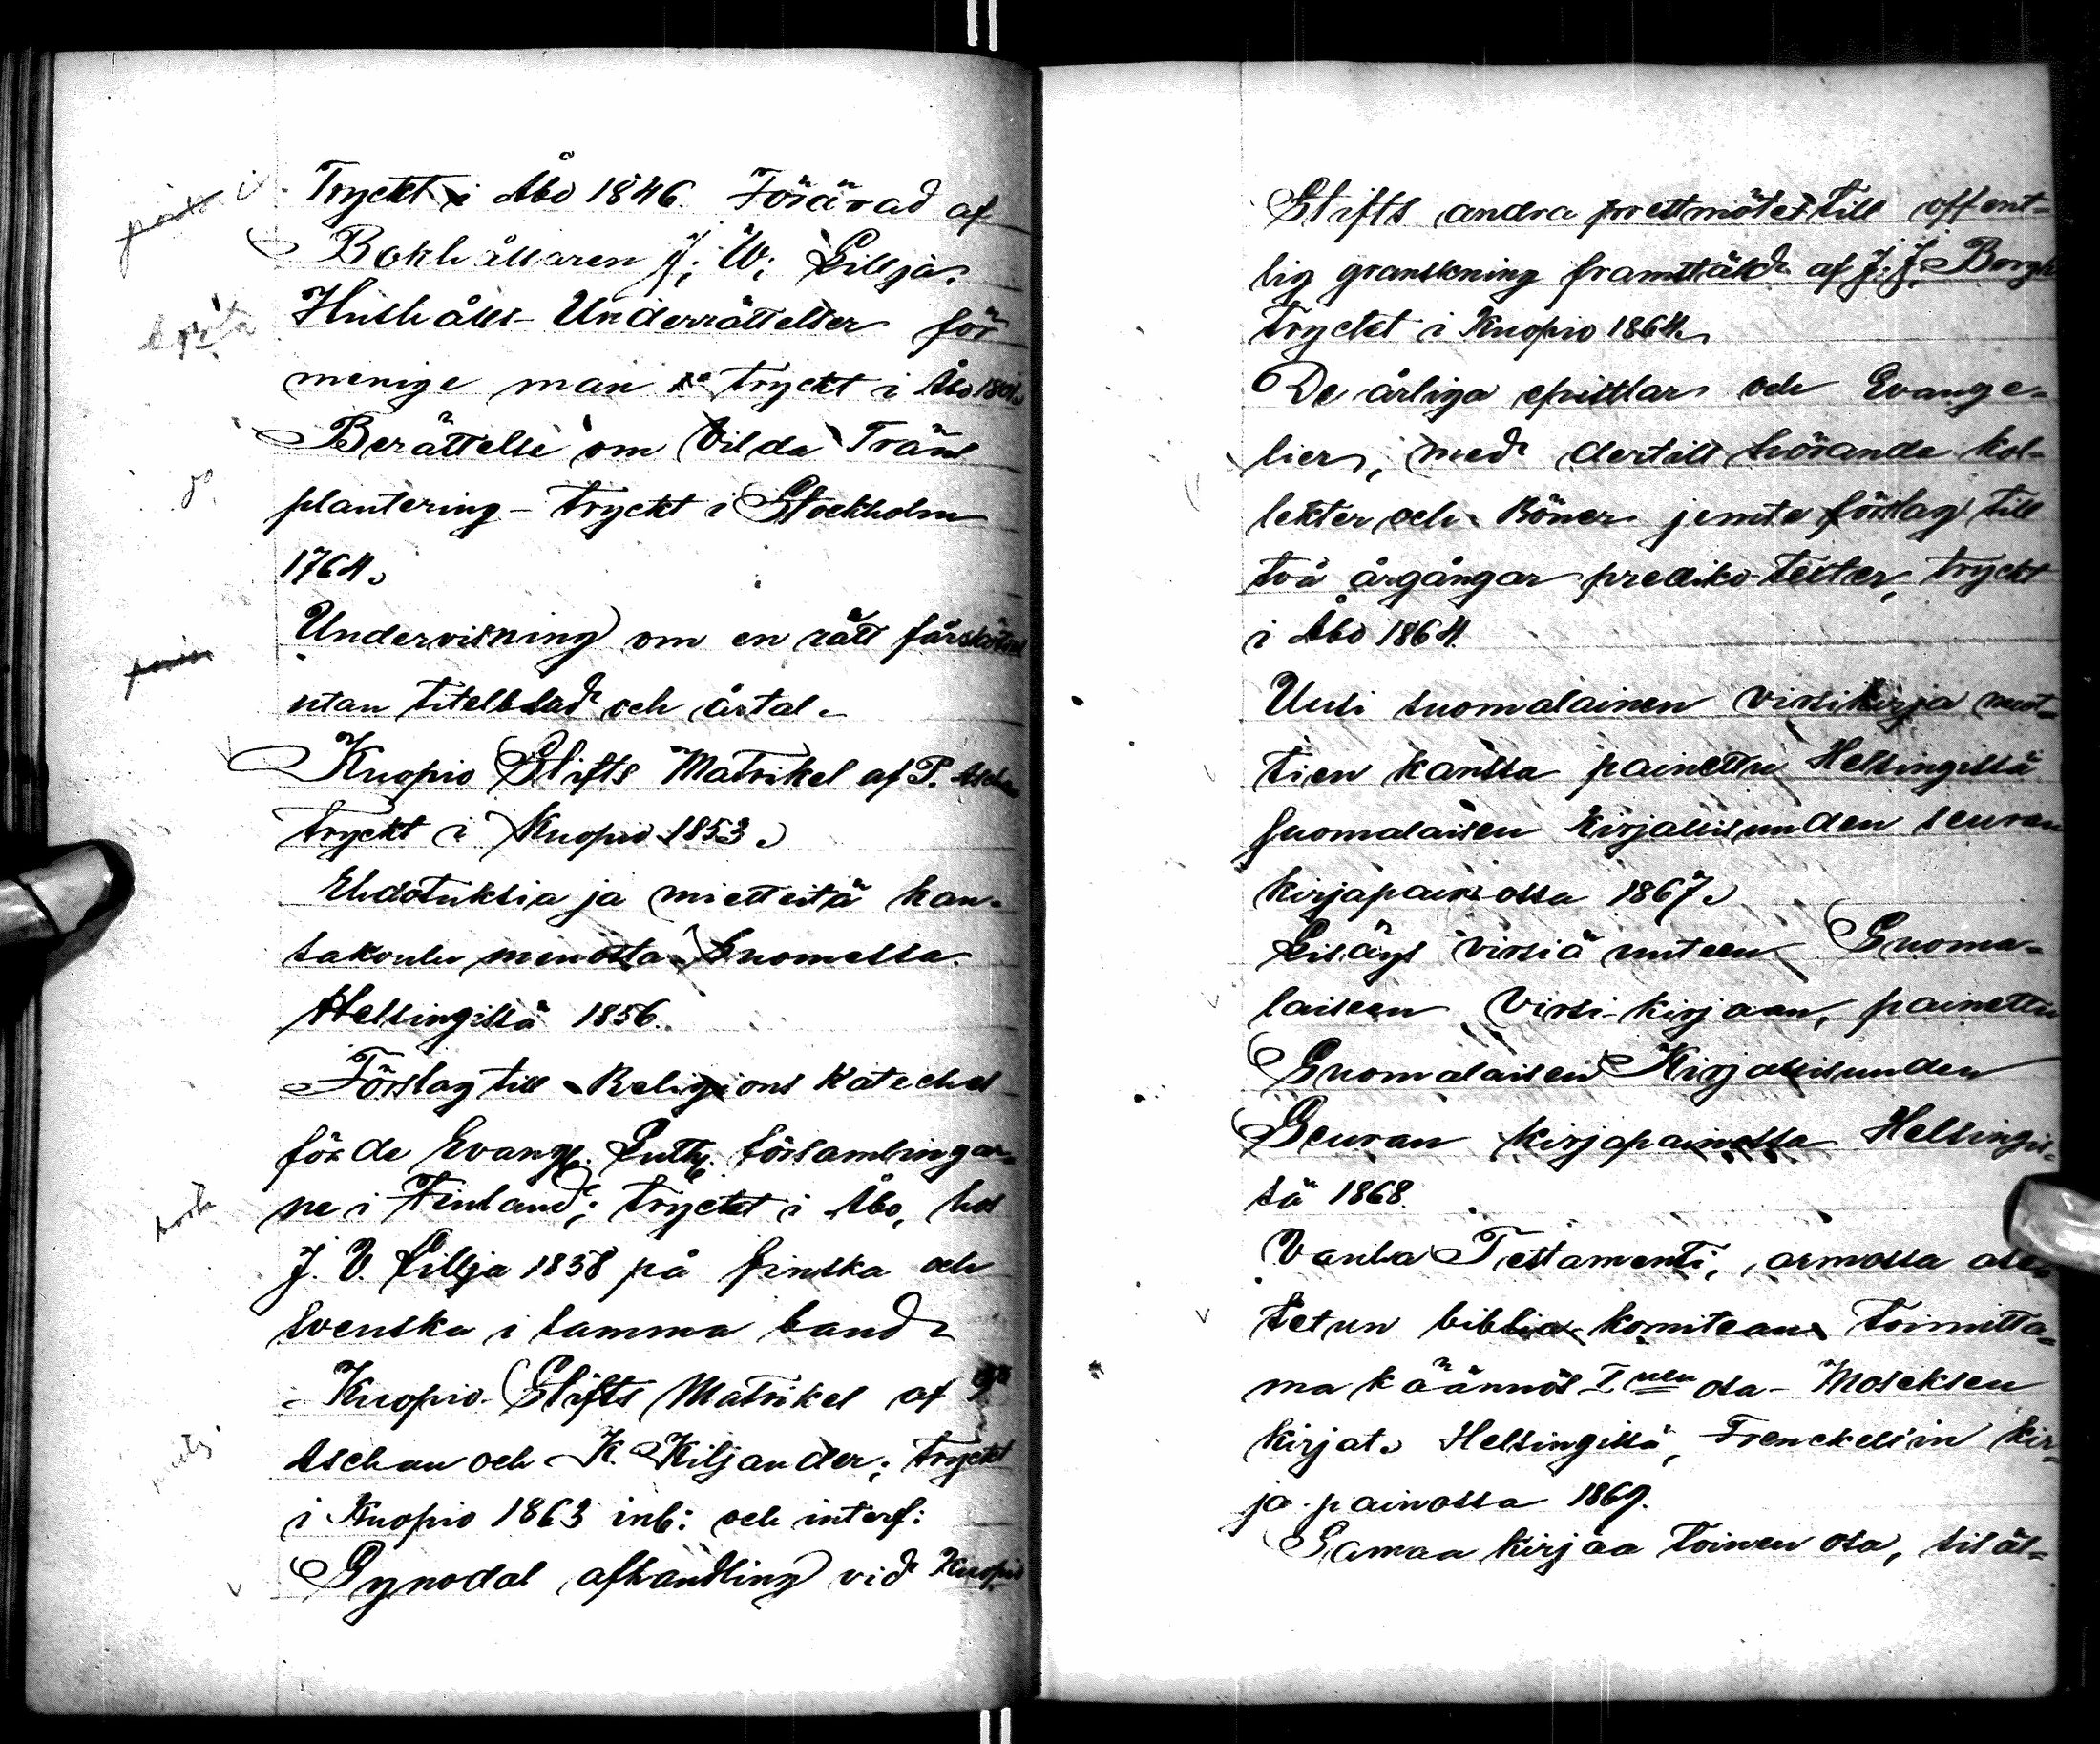 Tryckt i Åbo 1846. Förärad af
Bokhållaren J. W. Lillja.
Hushålls-Underrättelser för
menige man tryckt i Åbo 1801.
Berättelse om Vilda Träns
plantering - tryckt i Stockholm
1764.
Undervisning om en rätt fårskötsel
utan titelblad och årtal.
Kuopio Stifts Matrikel af P. Aschan
tryckt i Kuopio 1853.
Ehdotuksia ja mietteitä kan-
sakoulu menosta Suomessa.
Helsingissä 1856.
Förslag till Religions Kateches
för de Evang. Luth. församlingar-
ne i Finland; tryckt i Åbo, hos
J. V. Lillja 1858 på finska och
svenska i samma band
Kuopio Stifts Matrikel af
Aschan och K. Kiljander; tryckt
i Kuopio 1863 inb: och interf:
Synodal afhandling vid Kuopio
Stifts andra prestmötet till offent-
lig granskning framstäld af J. J. Bergh
tryckt i Kuopio 1864.
De årliga epistlar och Evange-
lier, med dertill hörande kol-
lekter och Böner jemte förslag till
två årgångar prediko texter, tryckt
i Åbo 1864.
Uusi suomalainen virsikirja nuot-
tien kanssa painettu Helsingissä
suomalaisen kirjallisuuden seuran
kirjapainossa 1867.
Lisäys virsiä uuteen Suoma-
laiseen Virsi-kirjaan, painettu
Suomalaisen Kirjallisuuden
Seuran kirjapainossa Helsingis-
sä 1868.
Vanha Testamenti, armossa ase-
tetun biblia komitean toimitta-
ma käännös I nen osa - Moseksen
kirjat. Helsingissä, Frenckelin kir-
ja painossa 1869.
Samaa kirjaa toinen osa, sisäl-